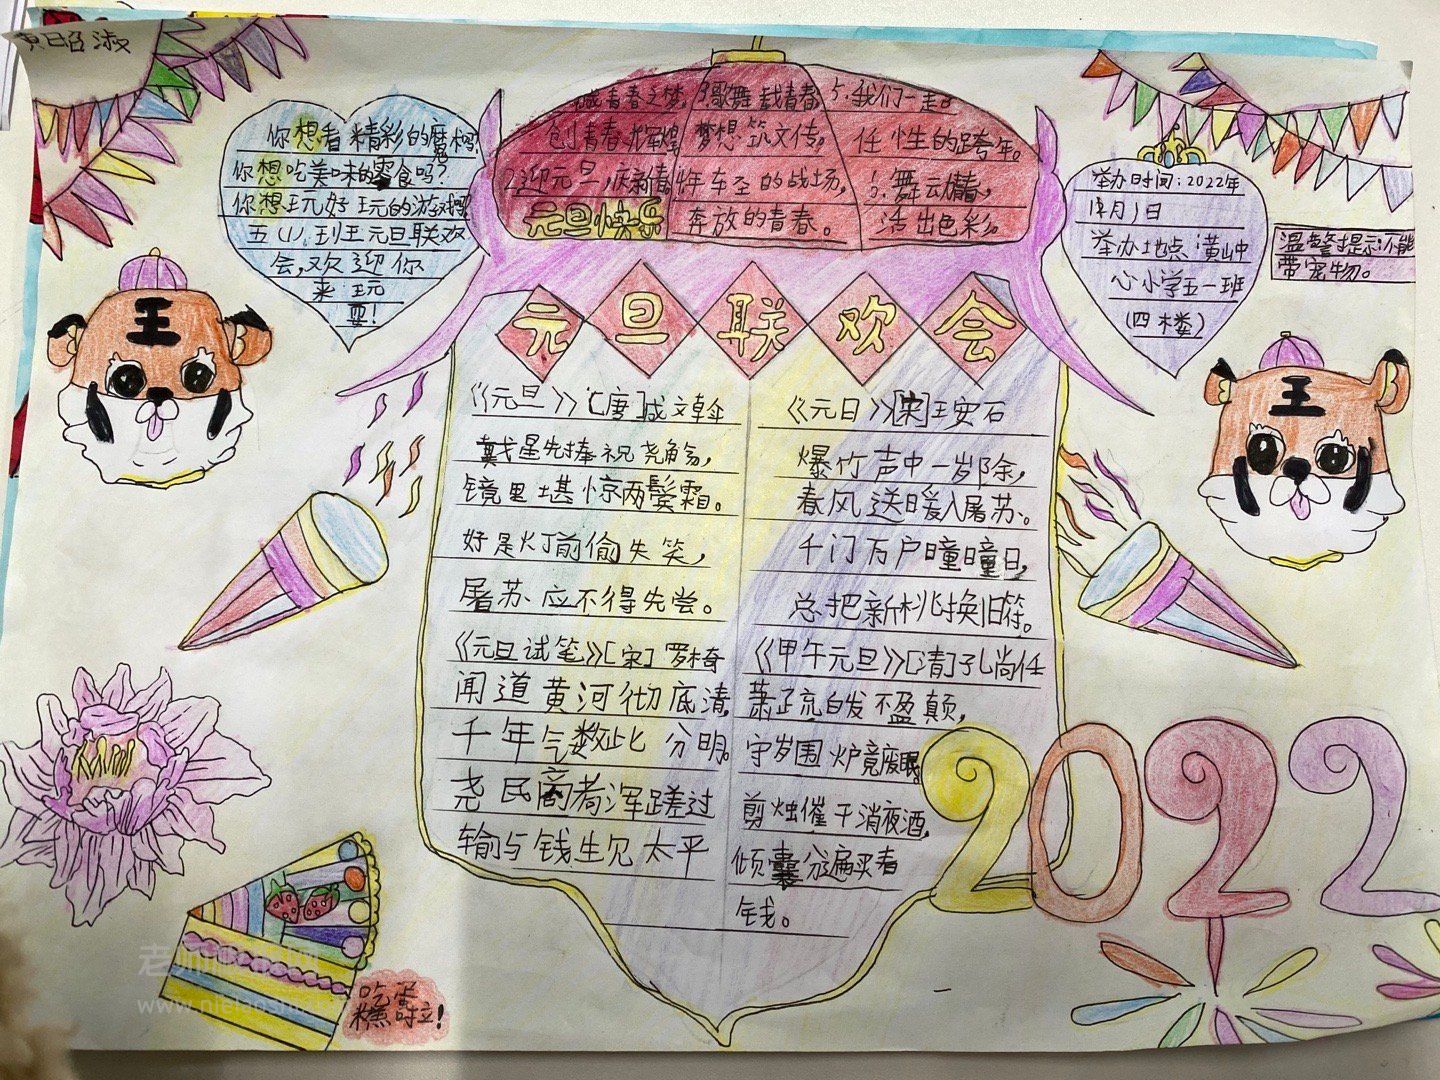 昭淑
你想看精彩的魔
你想吃美味的零食吗?
你想玩好玩的游戏
五(1)班元旦联欢
会,欢迎你
来玩
耍!
青春之梦,
创青春辉煌
2.迎元旦,庆新春
元旦快乐
歌舞载青春
梦想筑文传。
年车至的战场,
奔放的青春。
5.我们一起
任性的跨年。
舞云情,
活出色彩。
举办时间:2022年
1月1日
举办地点:黄山中
心小学五一班
(四楼)
温馨提示:不能
带宠物。
元旦联欢会
《元旦》[唐]成文幹
戴星先捧祝尧觞,
镜里堪惊两鬓霜。
好是灯前偷失笑,
屠苏应不得先尝。
《元旦试笔》[宋]罗椅
闻道黄河彻底清,
千年气数此分明。
尧民商耈浑蹉过
输与钱生见太平
《元日》[宋]王安石
爆竹声中一岁除,
春风送暖入屠苏。
千门万户瞳瞳日,
总把新桃换旧符。
《甲午元旦》[清]孔尚任
萧疏白发不盈颠,
守岁围炉竟废眠
剪烛催干消夜酒,
倾囊分遍买春
钱。
王
王
2022
吃蛋
糕啦!